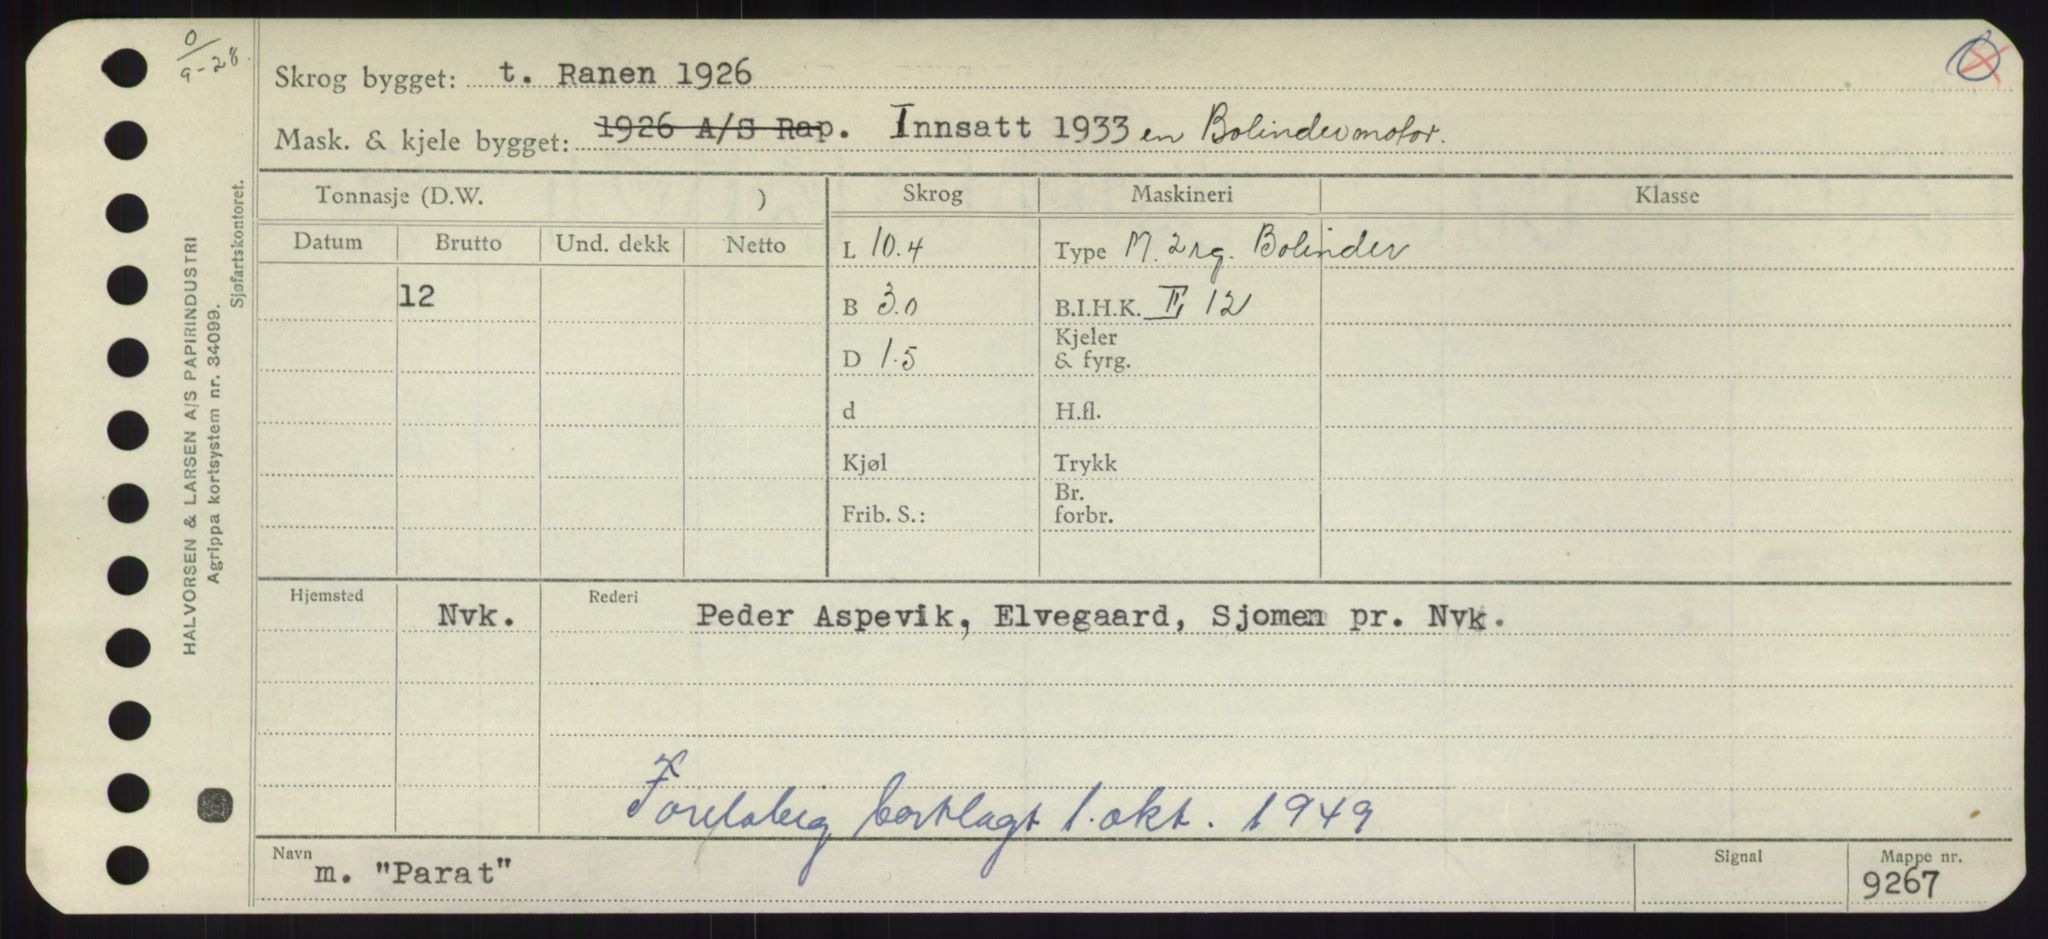 0/9-28.
Skrog bygget: t. Ranen 1926
Mask. & kjele bygget: 1926 A/S Rap. Innsatt 1933 en Bolindermotor.
Tonnasje (D.W. ) Skrog Maskineri Klasse
Datum Brutto Und. dekk Netto
L 10.4 Type M. 2 rg. Bolinder
12
B 3.0 B.I.H.K. II, 12
D 1.5 Kjeler & fyrg.
d H.fl.
Kjøl Trykk
Frib. S.: Br. forbr.
Hjemsted Nvk. Rederi Peder Aspevik, Elvegaard, Sjomen pr. Nvk.
bortlagt 1. okt. 1949
Navn m. "Parat" Signal Mappe nr. 9267
HALVORSEN & LARSEN A/S PAPIRINDUSTRI
Agrippa kortsystem nr. 34099.
Sjøfartskontoret.